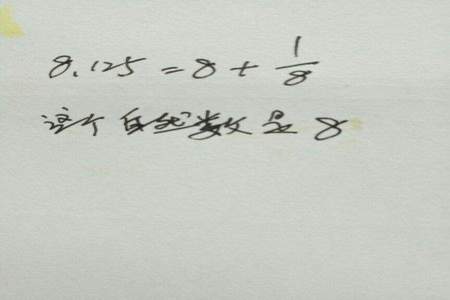 8.125 = 8 + 1/8
这个自然数是 8